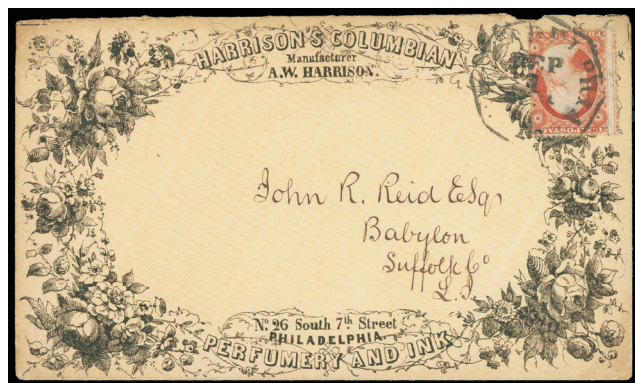 HARRISON'S COLUMBIAN
Manufacturer
A.W. HARRISON.
SEP
John R. Reid Esqr
Babylon
Suffolk Co
L. I
No. 26 South 7th Street
PHILADELPHIA.
PERFUMERY AND INK